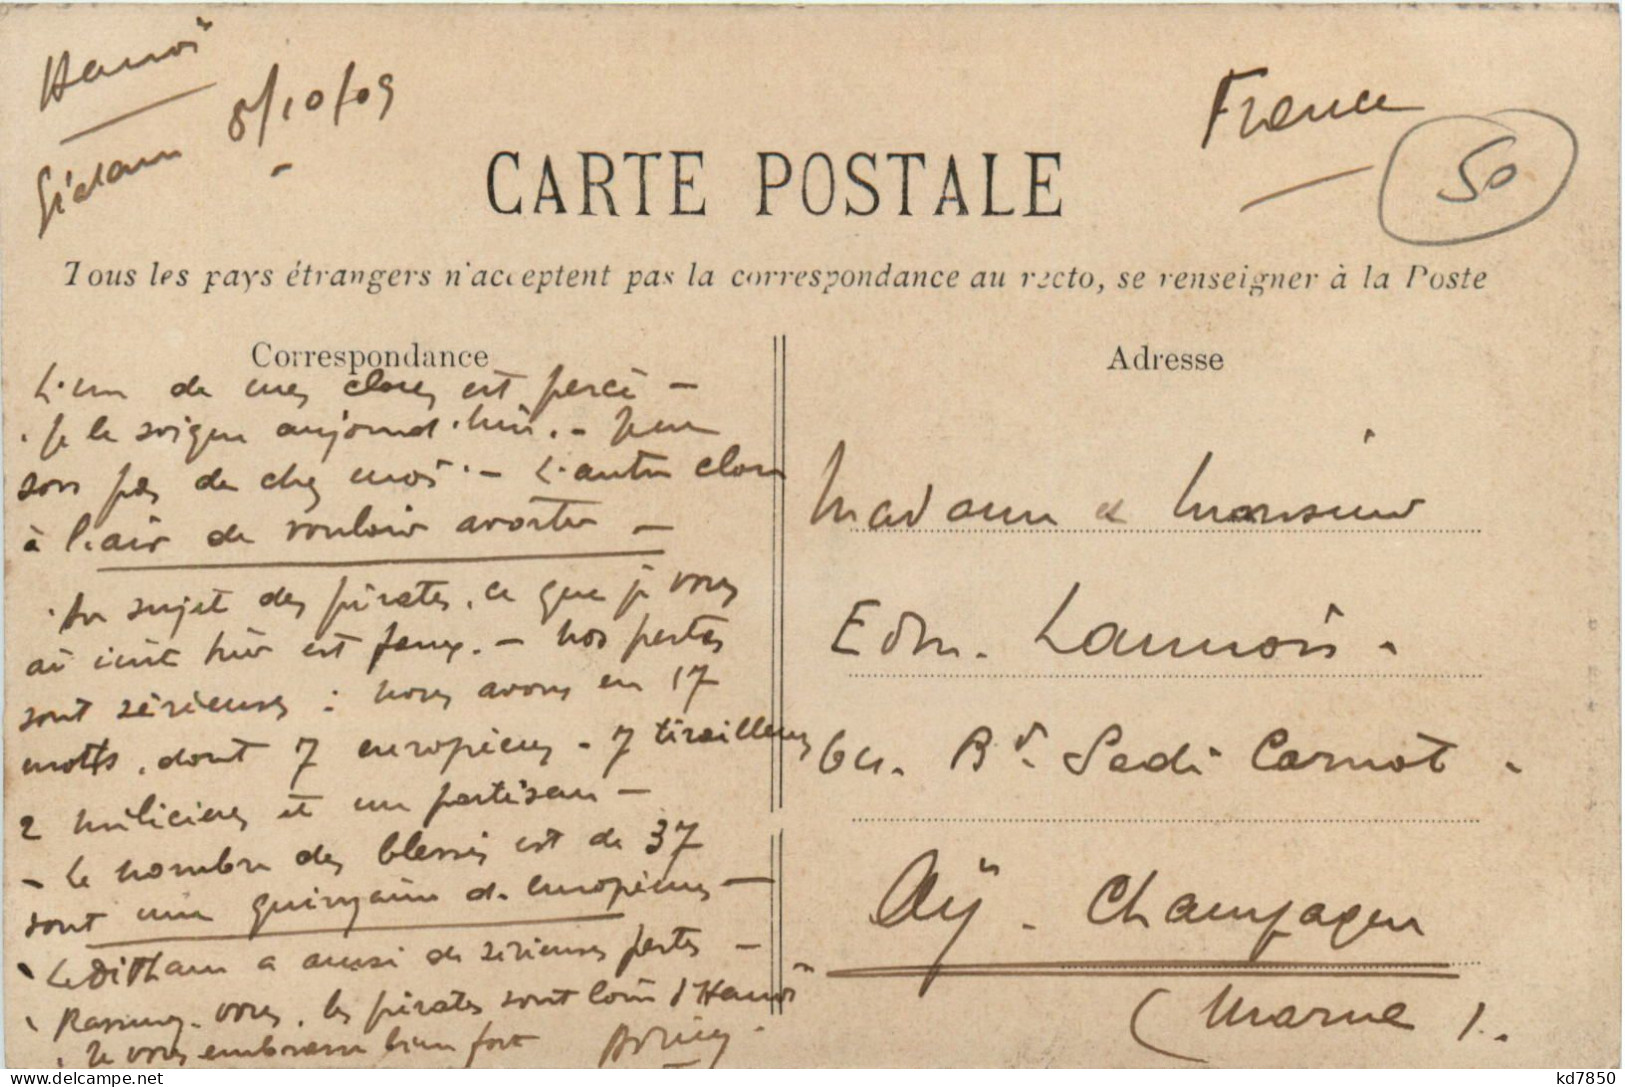 Hanoï
8/10/09
France
50
CARTE POSTALE
Tous les pays étrangers n'acceptent pas la correspondance au recto, se renseigner à la Poste
Correspondance
L'un de mes clous est percé –
Je le soigne aujourd'hui. – Je ne
sors pas de chez moi – L'autre clou
à l'air de vouloir avorter –
Au sujet des pirates, ce que je vous
ai écrit hier est faux. – Nos pertes
sont sérieuses : nous avons eu 17
morts, dont 7 européens – 7 tirailleurs
2 miliciens et un partisan –
– Le nombre des blessés est de 37
dont une quinzaine d'européens –
Le Dé Tham a aussi de sérieuses pertes –
Rassurez-vous, les pirates sont loin d'Hanoï
Je vous embrasse bien fort
Adresse
Madame & Monsieur
Edm. Launois.
64. Bd. Sadi Carnot.
Aÿ. Champagne
(Marne).
kd7850